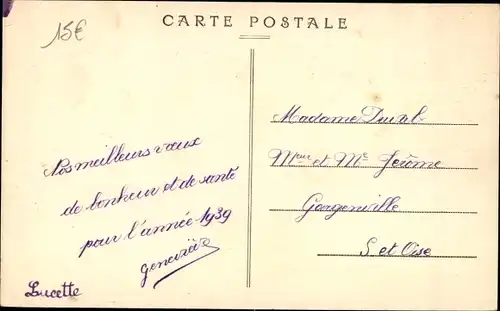 15€
CARTE POSTALE
Nos meilleurs vœux
de bonheur et de santé
pour l'année 1939
Geneviève
Lucette
Madame
Meur et Me Jérôme
Gorgenville
S. et Oise